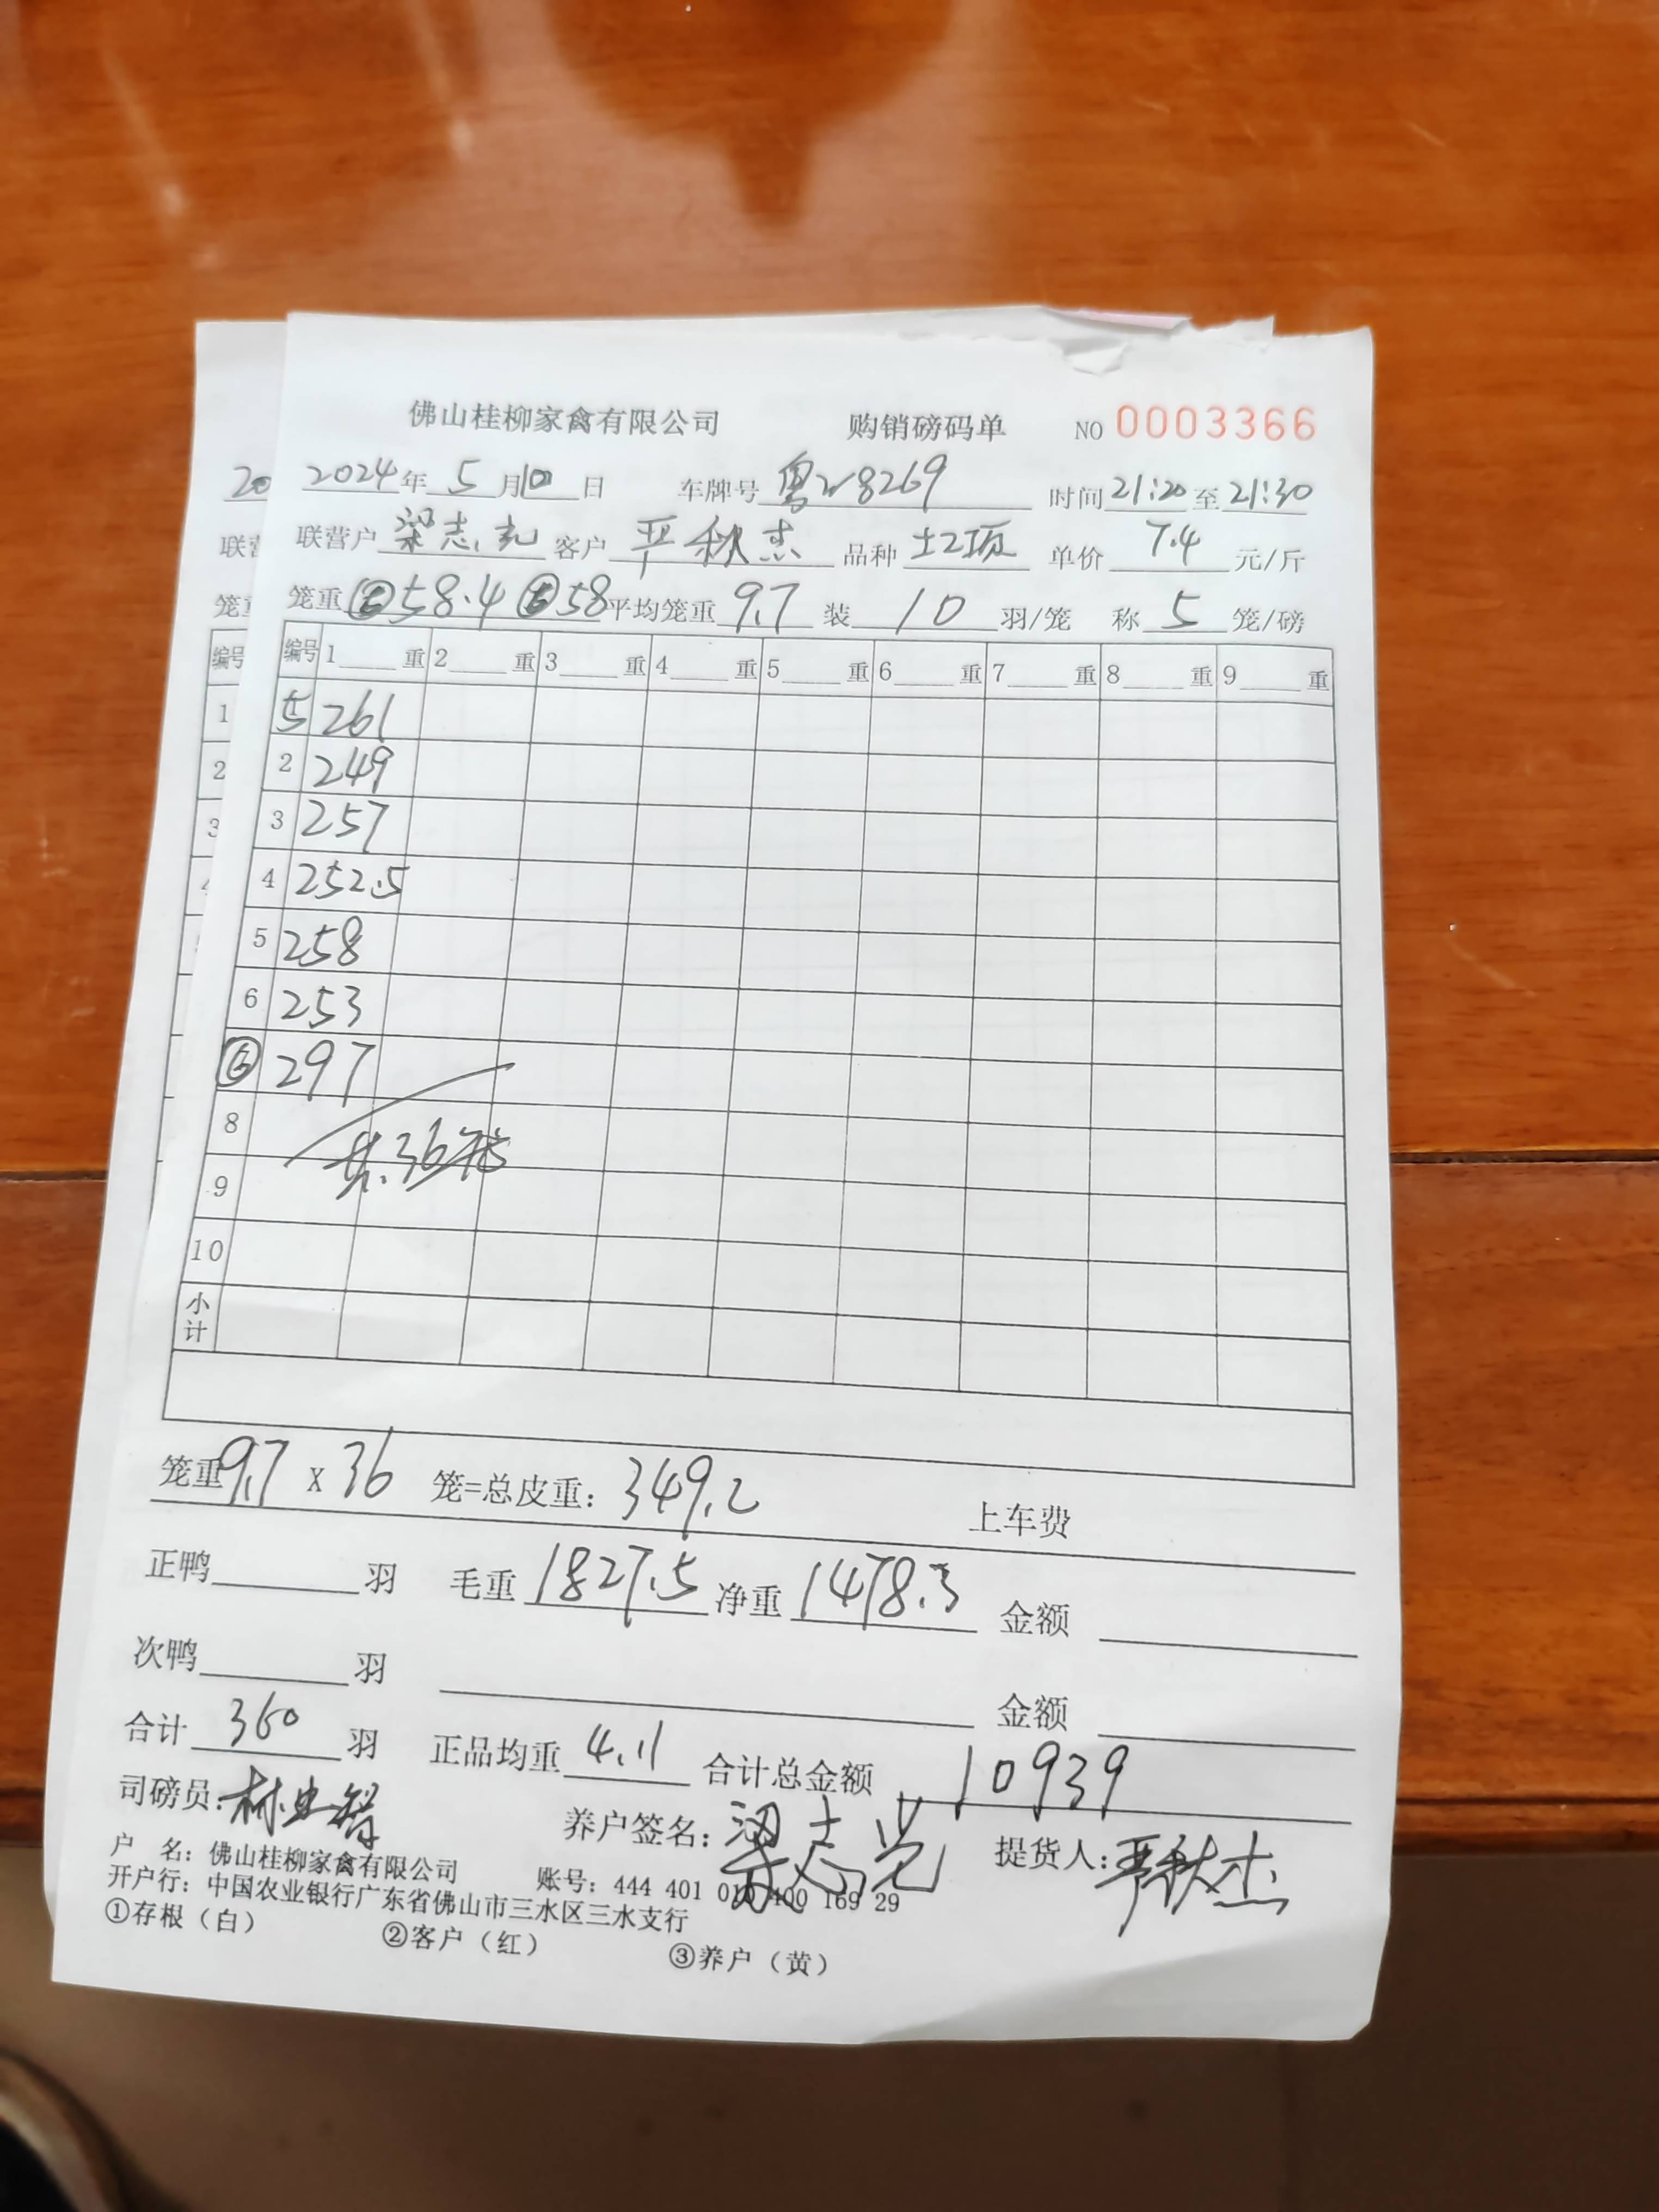 佛山桂柳家禽有限公司 购销磅码单 NO 0003366
20 2024年 5 月 10 日 车牌号 粤 8269 时间 21:20 至 21:30
联营 联营户 梁志光 客户 严秋杰 品种 土2项 单价 7.4 元/斤
笼重 笼重 ⑥58.4 ⑥58 平均笼重 9.7 装 10 羽/笼 称 5 笼/磅
编号 编号 1 重 2 重 3 重 4 重 5 重 6 重 7 重 8 重 9 重
1 5 261
2 2 249
3 3 257
4 4 252.5
5 258
6 253
⑥ 297
8
共36笼
9
10
小计
笼重 9.7 x 36 笼=总皮重: 349.2 上车费
正鸭 羽 毛重 1827.5 净重 1478.3 金额
次鸭 羽 金额
合计 360 羽 正品均重 4.11 合计总金额 10939
司磅员: 养户签名: 梁志光 提货人: 严秋杰
户 名: 佛山桂柳家禽有限公司 账号: 444 401 010 400 169 29
开户行: 中国农业银行广东省佛山市三水区三水支行
①存根（白） ②客户（红） ③养户（黄）